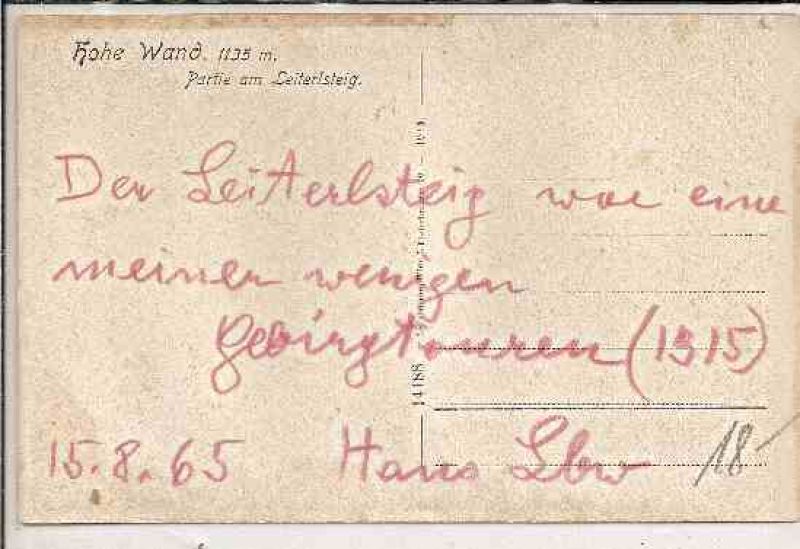 Hohe Wand. 1135 m.
Partie am Leiterlsteig.
Der Leiterlsteig war eine
meiner wenigen
Gebirgstouren (1915)
15.8.65 Hans
18
14188